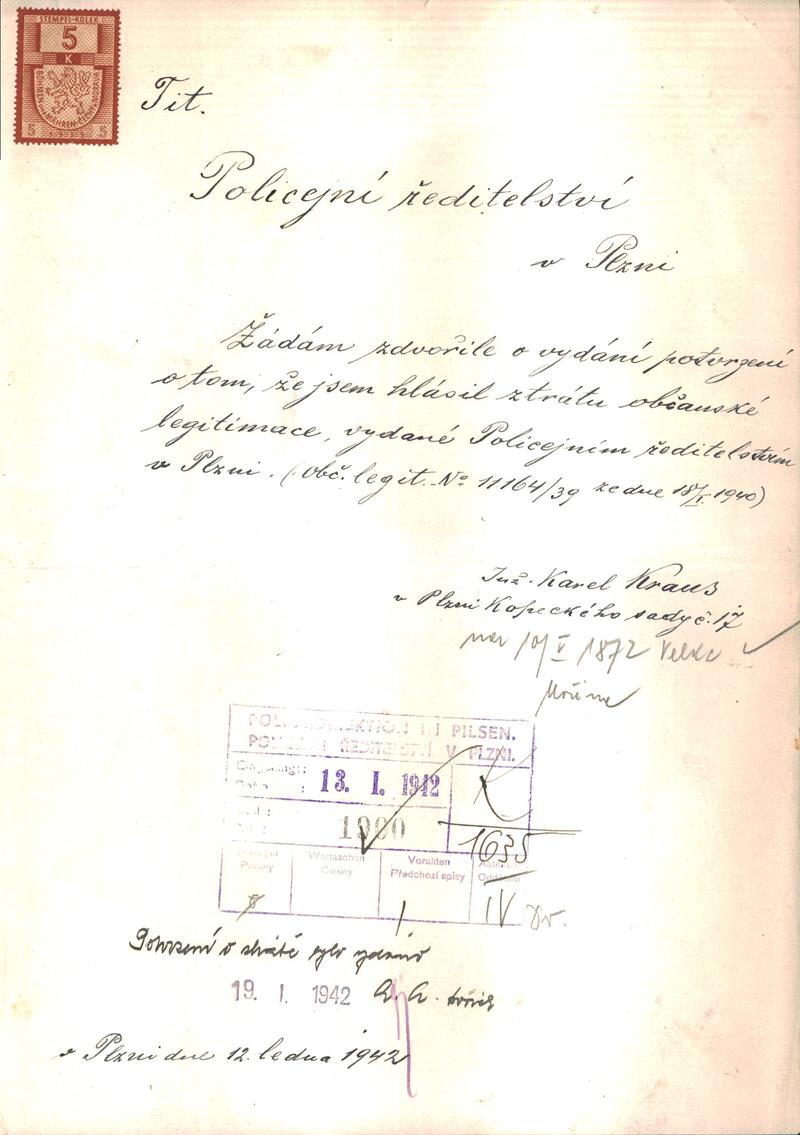 STEMPEL-KOLEK
5
K
BÖHMEN UND MÄHREN · ČECHY A MORAVA
5 1939 5
Tit.
Policejní ředitelství
v Plzni
Žádám zdvořile o vydání potvrzení
o tom, že jsem hlásil ztrátu občanské
legitimace, vydané Policejním ředitelstvím
v Plzni. (Obč. legit. No 11164/39 ze dne 18/I. 1940)
Inž. Karel Kraus
v Plzni Kopeckého sady č. 17
nar 10/V 1872 Velká
POLIZEIDIREKTION IN PILSEN.
POLICEJNÍ ŘEDITELSTVÍ V PLZNI.
13. I. 1942
1900
1635
Wertsachen
Vorakten
Přílohy
Ceniny
Předchozí spisy
IV
Potvrzení o ztrátě bylo vydáno
19. I. 1942
v Plzni dne 12. ledna 1942